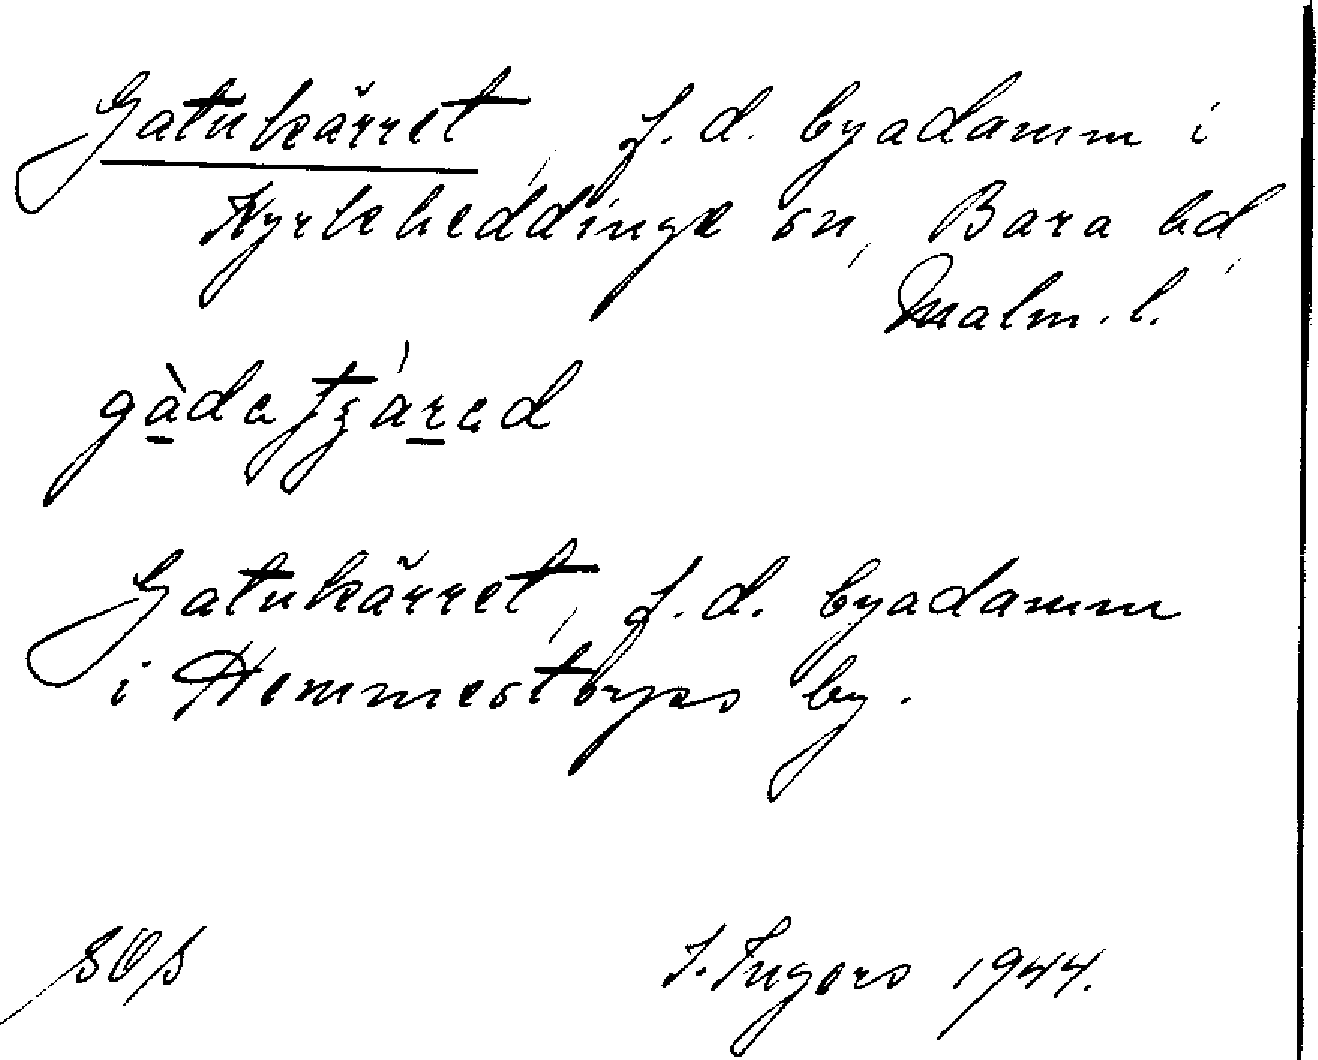 Gatukärret, f.d. byadamm i
Kyrkheddinge sn, Bara hd,
Malm. l.
Gatukärret, f.d. byadamm
i Hemmestorps by.
I. Ingers 1944.